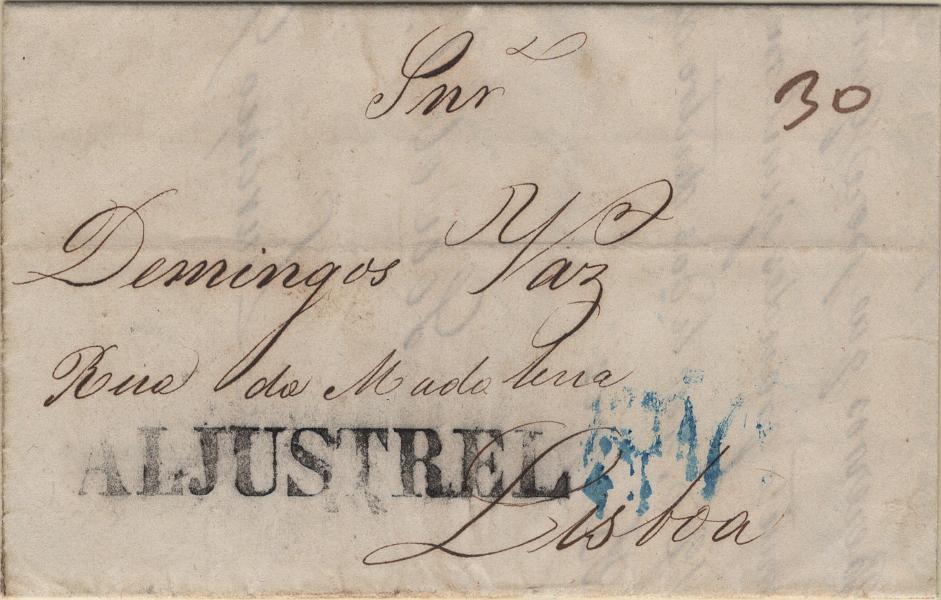 Snr
30
Domingos Vaz
Rua da Madalena
ALJUSTREL
Lisboa